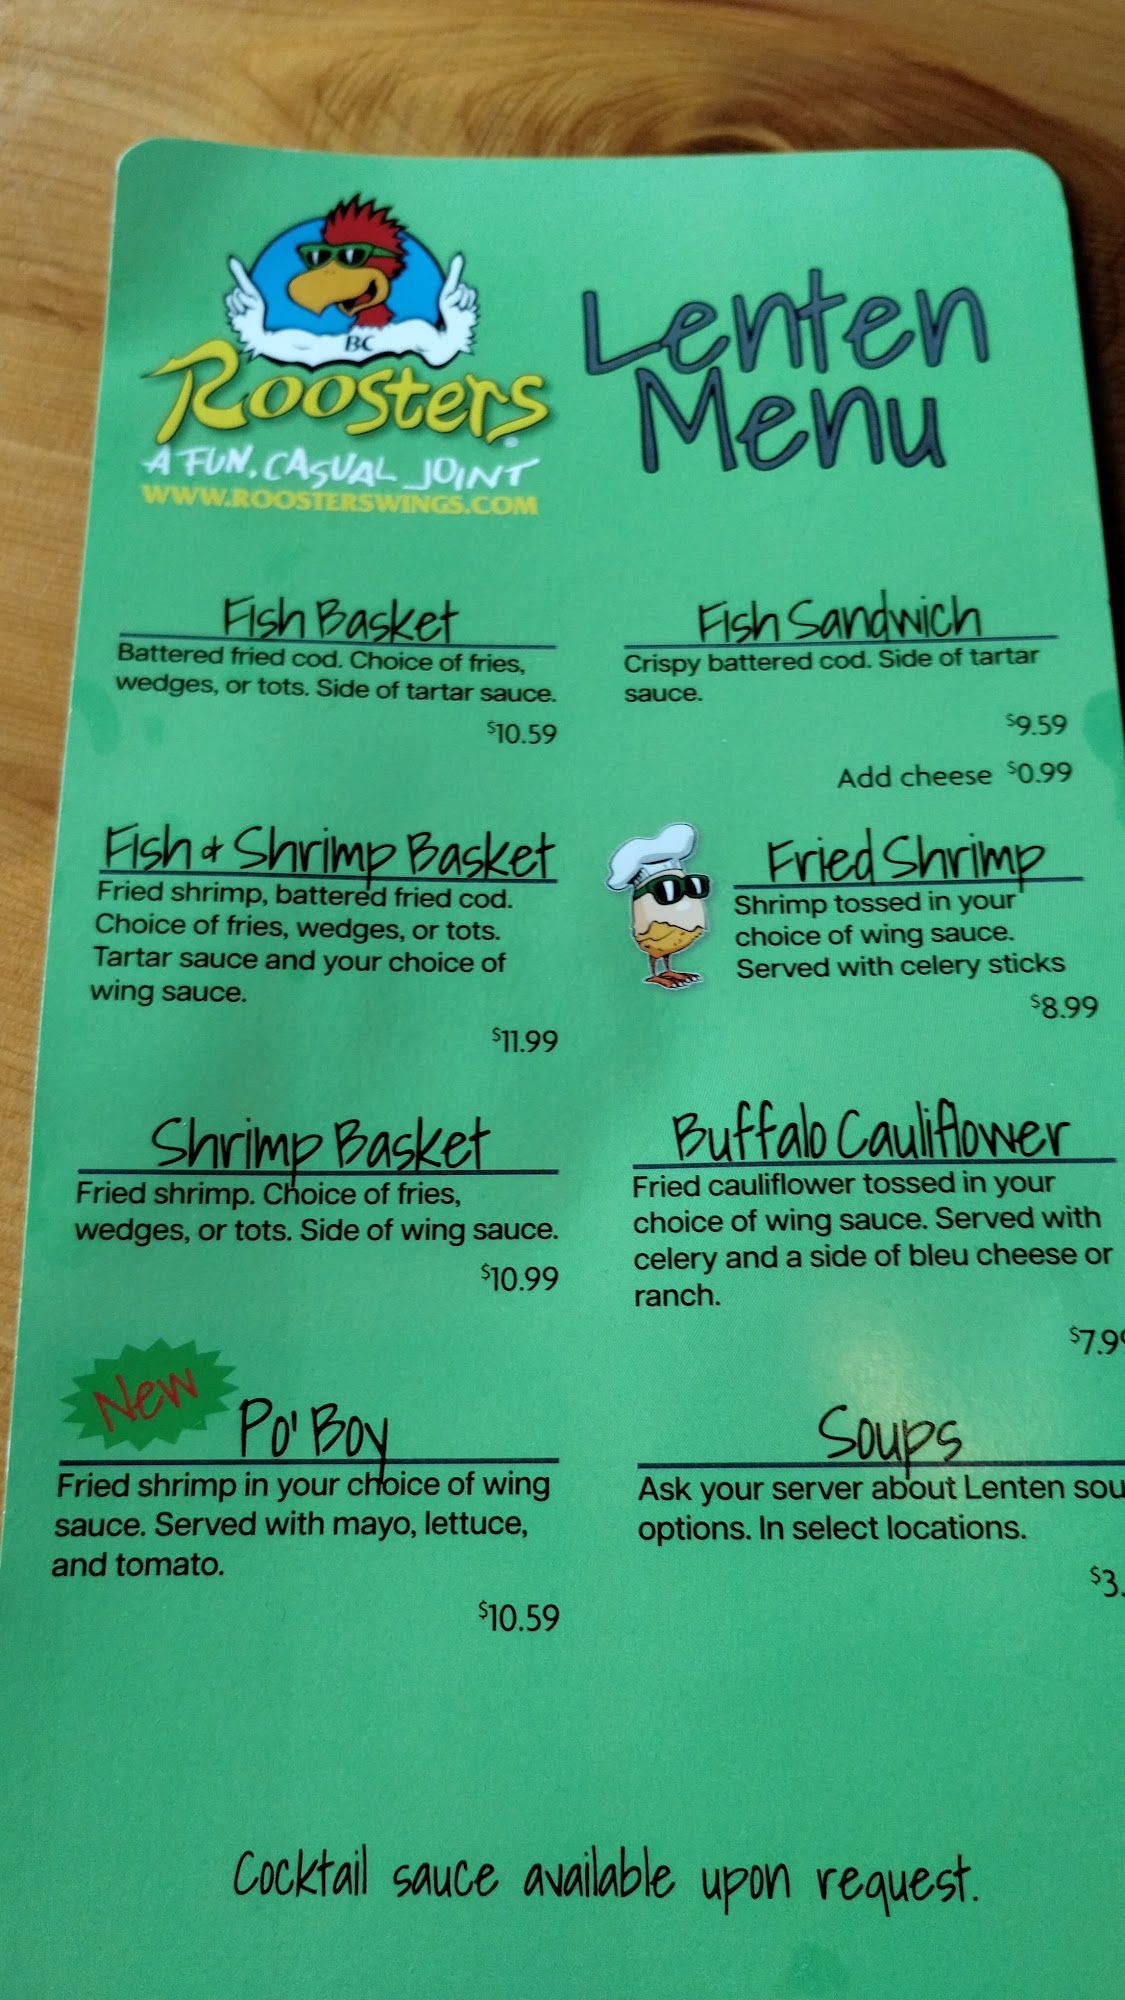 BC
Roosters
A FUN, CASUAL JOINT
WWW.ROOSTERSWINGS.COM
Lenten
Menu
Fish Basket
Battered fried cod. Choice of fries,
wedges, or tots. Side of tartar sauce.
$10.59
Fish & Shrimp Basket
Fried shrimp, battered fried cod.
Choice of fries, wedges, or tots.
Tartar sauce and your choice of
wing sauce.
$11.99
Shrimp Basket
Fried shrimp. Choice of fries,
wedges, or tots. Side of wing sauce.
$10.99
New
Po' Boy
Fried shrimp in your choice of wing
sauce. Served with mayo, lettuce,
and tomato.
$10.59
Fish Sandwich
Crispy battered cod. Side of tartar
sauce.
$9.59
Add cheese $0.99
Fried Shrimp
Shrimp tossed in your
choice of wing sauce.
Served with celery sticks
$8.99
Buffalo Cauliflower
Fried cauliflower tossed in your
choice of wing sauce. Served with
celery and a side of bleu cheese or
ranch.
Soups
Ask your server about Lenten
options. In select locations.
Cocktail sauce available upon request.